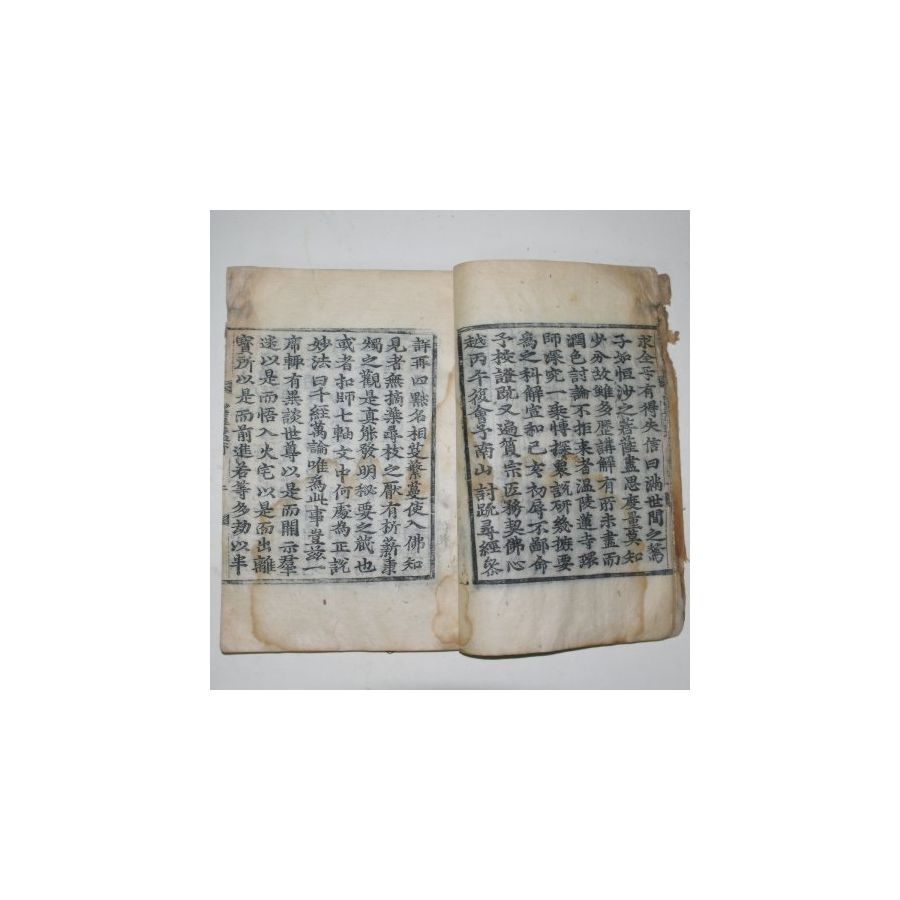 求全each有得失信曰滿世間之鶖
子如恒沙之菩薩盡思度量莫知
少分故雖多歷講解有所未盡而
潤色討論不指來者溫陵蓮寺環
師深究一乘愽探衆說研幾摭要
爲之科解宣和己亥初辱不鄙命
予校證旣又遍質宗匠務契佛心
越丙午復會予南山討䟽尋經
詳再四㸃名相芟蘩蔓使入佛知
見者無摘葉尋枝之厭有折薪秉
燭之觀是真能發明秘要之藏也
或者扣師七軸文中何處為正說
妙法曰千經萬論唯為此事豈茲一
席輙有異談世尊以是而開示羣
迷以是而悟入火宅以是而出離
寳所以是而前進若等多劫以半